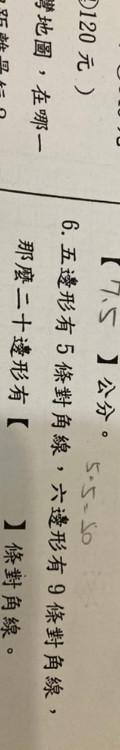 120元)
地圖，在哪一
【7.5】公分。
6. 五邊形有5條對角線，六邊形有9條對角線，
那麼二十邊形有【　　】條對角線。